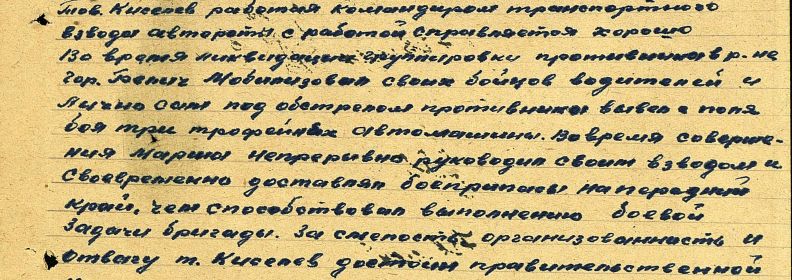 Тов. Киселев работая командиром транспортного
взвода авторотый с работой справляется хорошо
Во время ликвидации группировки противника в р-не
гор. Грейч Мобилизовал своих бойцов водителей и
Лично Сам под обстрелом противника вывел с поля
боя три трофейных автомашины. Вовремя соверше-
ния марша непрерывно руководил своим взводом и
своевременно доставлял боеприпасы на передний
край, чем способствовал выполнению боевой
Задачи бригады. За смелость, организованность и
отвагу т. Киселев достоин правительственной